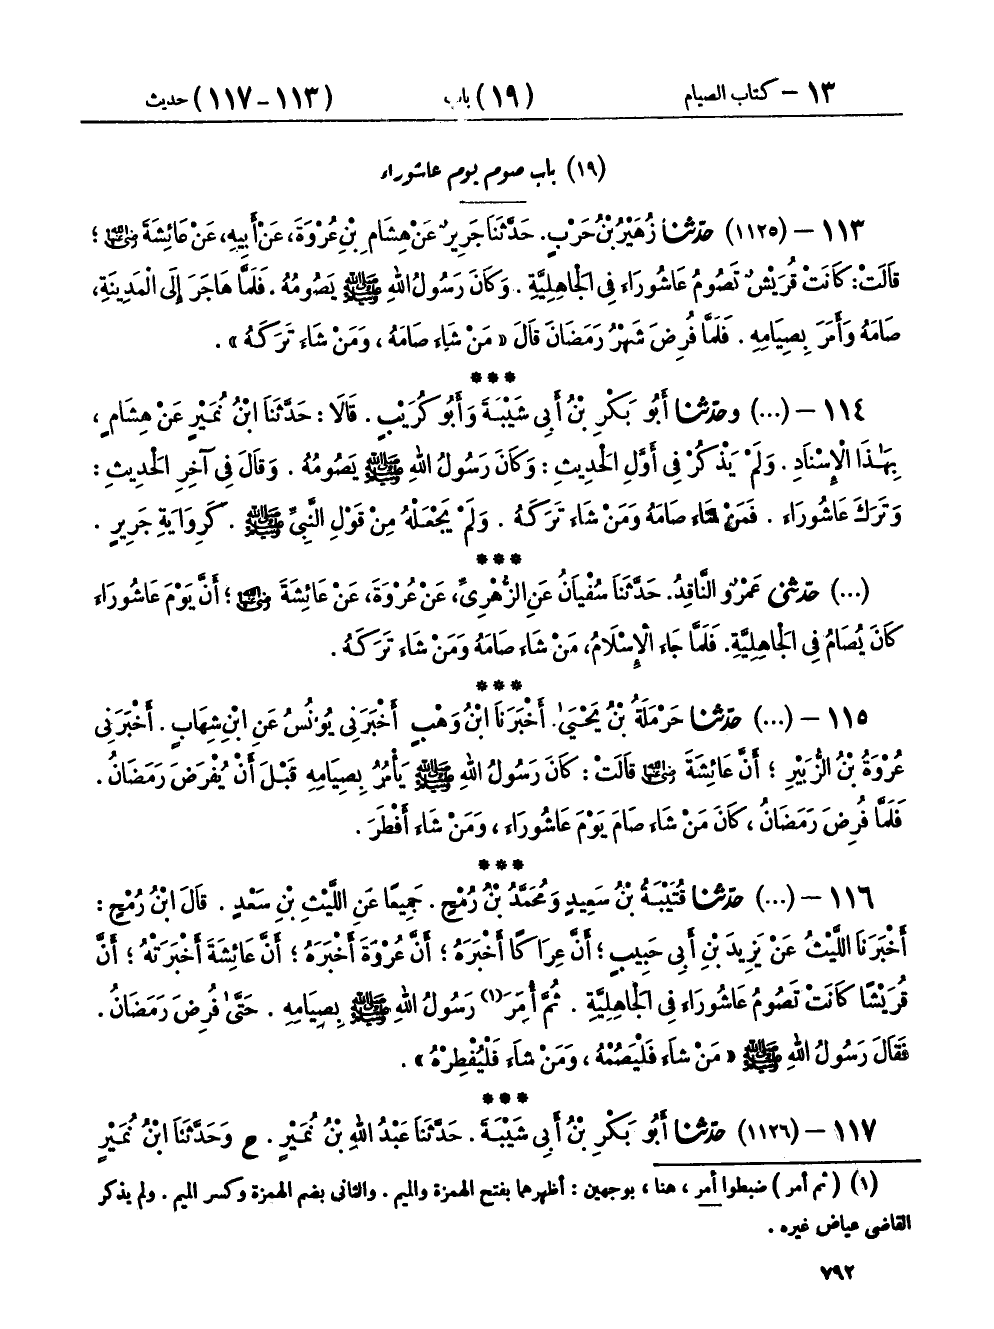 ١٣ – كتاب الصيام (١٩) باب (١١٣-١١٧) حديث
(١٩) باب صوم يوم عاشوراء
١١٣ – (١١٢٥) حَدَّثَنَا زُهَيْرُ بْنُ حَرْبٍ. حَدَّثَنَا جَرِيرٌ عَنْ هِشَامِ بْنِ عُرْوَةَ، عَنْ أَبِيهِ، عَنْ عَائِشَةَ رضي الله عنها ؛
قَالَتْ: كَانَتْ قُرَيْشٌ تَصُومُ عَاشُورَاءَ فِي الْجَاهِلِيَّةِ . وَكَانَ رَسُولُ اللهِ ﷺ يَصُومُهُ . فَلَمَّا هَاجَرَ إِلَى الْمَدِينَةِ،
صَامَهُ وَأَمَرَ بِصِيَامِهِ . فَلَمَّا فُرِضَ شَهْرُ رَمَضَانَ قَالَ « مَنْ شَاءَ صَامَهُ ، وَمَنْ شَاءَ تَرَكَهُ » .
***
١١٤ – (...) وحَدَّثَنَا أَبُو بَكْرِ بْنُ أَبِي شَيْبَةَ وَأَبُو كُرَيْبٍ . قَالَا : حَدَّثَنَا ابْنُ نُمَيْرٍ عَنْ هِشَامٍ ،
بِهَذَا الْإِسْنَادِ . وَلَمْ يَذْكُرْ فِي أَوَّلِ الْحَدِيثِ : وَكَانَ رَسُولُ اللهِ ﷺ يَصُومُهُ . وَقَالَ فِي آخِرِ الْحَدِيثِ :
وَتَرَكَ عَاشُورَاءَ . فَمَنْ شَاءَ صَامَهُ وَمَنْ شَاءَ تَرَكَهُ . وَلَمْ يَجْعَلْهُ مِنْ قَوْلِ النَّبِيِّ ﷺ . كَرِوَايَةِ جَرِيرٍ .
***
(...) حَدَّثَنِي عَمْرٌو النَّاقِدُ. حَدَّثَنَا سُفْيَانُ عَنِ الزُّهْرِيِّ، عَنْ عُرْوَةَ، عَنْ عَائِشَةَ رضي الله عنها ؛ أَنَّ يَوْمَ عَاشُورَاءَ
كَانَ يُصَامُ فِي الْجَاهِلِيَّةِ. فَلَمَّا جَاءَ الْإِسْلَامُ، مَنْ شَاءَ صَامَهُ وَمَنْ شَاءَ تَرَكَهُ .
***
١١٥ – (...) حَدَّثَنَا حَرْمَلَةُ بْنُ يَحْيَىٰ. أَخْبَرَنَا ابْنُ وَهْبٍ أَخْبَرَنِي يُونُسُ عَنِ ابْنِ شِهَابٍ . أَخْبَرَنِي
عُرْوَةُ بْنُ الزُّبَيْرِ ؛ أَنَّ عَائِشَةَ رضي الله عنها قَالَتْ : كَانَ رَسُولُ اللهِ ﷺ يَأْمُرُ بِصِيَامِهِ قَبْلَ أَنْ يُفْرَضَ رَمَضَانُ .
فَلَمَّا فُرِضَ رَمَضَانُ ، كَانَ مَنْ شَاءَ صَامَ يَوْمَ عَاشُورَاءَ ، وَمَنْ شَاءَ أَفْطَرَ .
***
١١٦ – (...) حَدَّثَنَا قُتَيْبَةُ بْنُ سَعِيدٍ وَمُحَمَّدُ بْنُ رُمْحٍ . جَمِيعًا عَنِ اللَّيْثِ بْنِ سَعْدٍ . قَالَ ابْنُ رُمْحٍ :
أَخْبَرَنَا اللَّيْثُ عَنْ يَزِيدَ بْنِ أَبِي حَبِيبٍ ؛ أَنَّ عِرَاكًا أَخْبَرَهُ ؛ أَنَّ عُرْوَةَ أَخْبَرَهُ ؛ أَنَّ عَائِشَةَ أَخْبَرَتْهُ ؛ أَنَّ
قُرَيْشًا كَانَتْ تَصُومُ عَاشُورَاءَ فِي الْجَاهِلِيَّةِ . ثُمَّ أُمِرَ(١) رَسُولُ اللهِ ﷺ بِصِيَامِهِ . حَتَّىٰ فُرِضَ رَمَضَانُ .
فَقَالَ رَسُولُ اللهِ ﷺ « مَنْ شَاءَ فَلْيَصُمْهُ ، وَمَنْ شَاءَ فَلْيُفْطِرْهُ » .
***
١١٧ – (١١٢٦) حَدَّثَنَا أَبُو بَكْرِ بْنُ أَبِي شَيْبَةَ . حَدَّثَنَا عَبْدُ اللهِ بْنُ نُمَيْرٍ . ح وَحَدَّثَنَا ابْنُ نُمَيْرٍ
(١) ( ثم أمر ) ضبطوا أمر ، هنا ، بوجهين : أظهرهما بفتح الهمزة والميم . والثانى بضم الهمزة وكسر الميم . ولم يذكر
القاضى عياض غيره .
٧٩٢